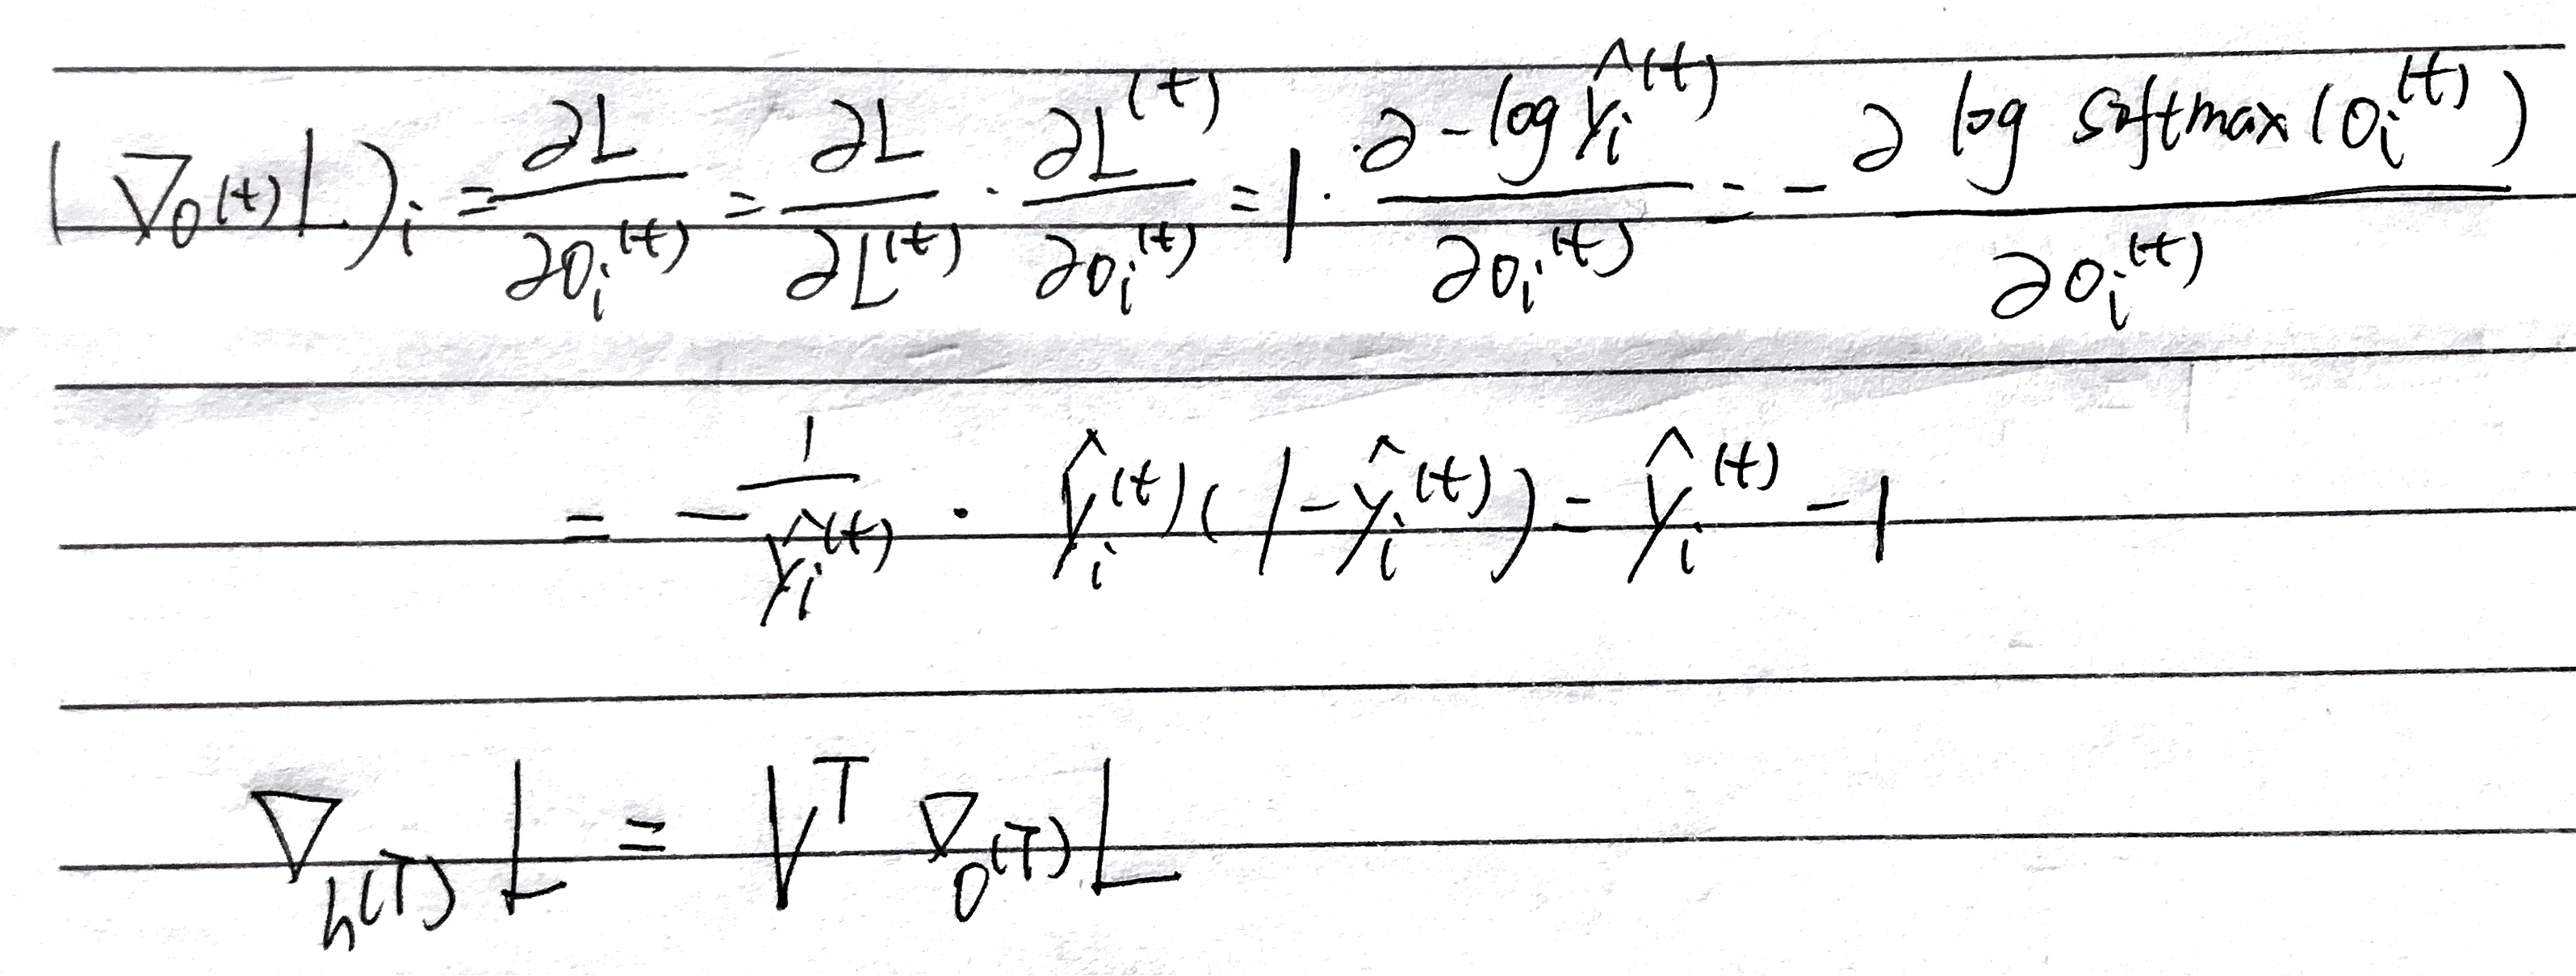 (∇_{o^{(t)}} L)_i = \frac{∂L}{∂o_i^{(t)}} = \frac{∂L}{∂L^{(t)}} · \frac{∂L^{(t)}}{∂o_i^{(t)}} = 1 · \frac{∂ - log ŷ_i^{(t)}}{∂o_i^{(t)}} = - \frac{∂ log softmax(o_i^{(t)})}{∂o_i^{(t)}}
= - \frac{1}{ŷ_i^{(t)}} · ŷ_i^{(t)} (1 - ŷ_i^{(t)}) = ŷ_i^{(t)} - 1
∇_{h^{(T)}} L = V^T ∇_{o^{(T)}} L